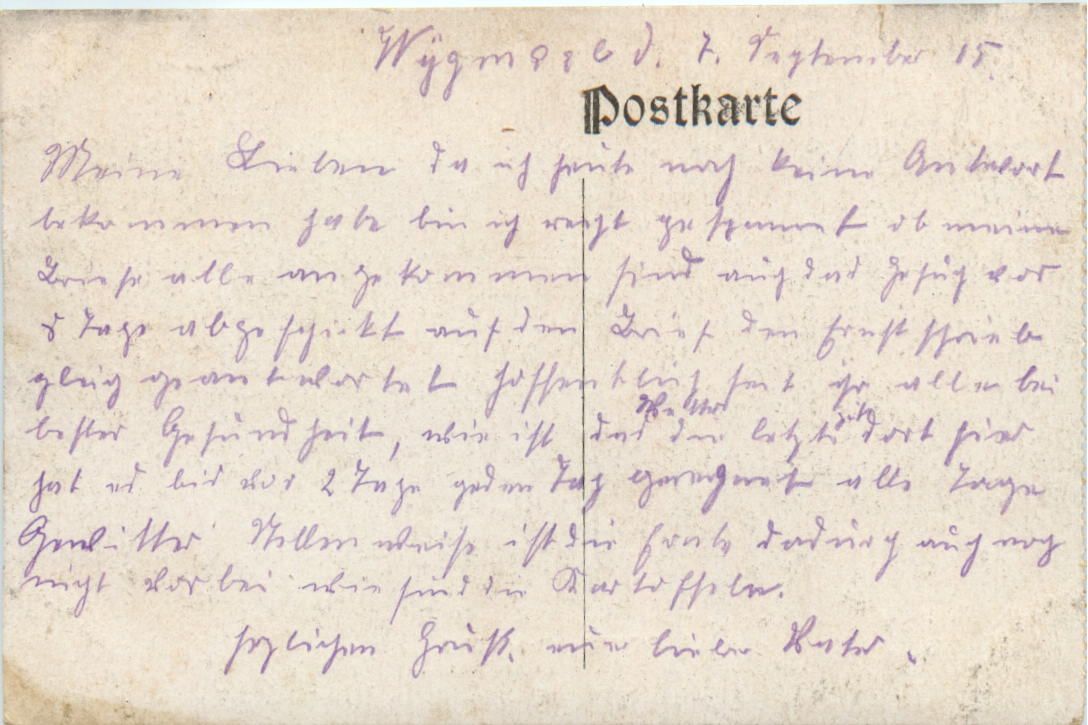 d. 7. September 15.
Postkarte
Meine Lieben da ich heute noch keine Antwort
bekommen habe bin ich recht gespannt ob meine
Briefe alle angekommen sind auch das Gesuch vor
8 Tage abgeschickt auf den Brief den Ernst schrieb
gleich geantwortet hoffentlich seit ihr alle bei
bester Gesundheit, wie ist das Wetter die letzte Zeit dort hier
hat es bis vor 2 Tage jeden Tag geregnet alle Tage
Gewitter Stellenweise ist die Ernte dadurch auch noch
nicht vorbei wie sind die Kartoffeln.
herzlichen Gruß. euer lieber Vater.